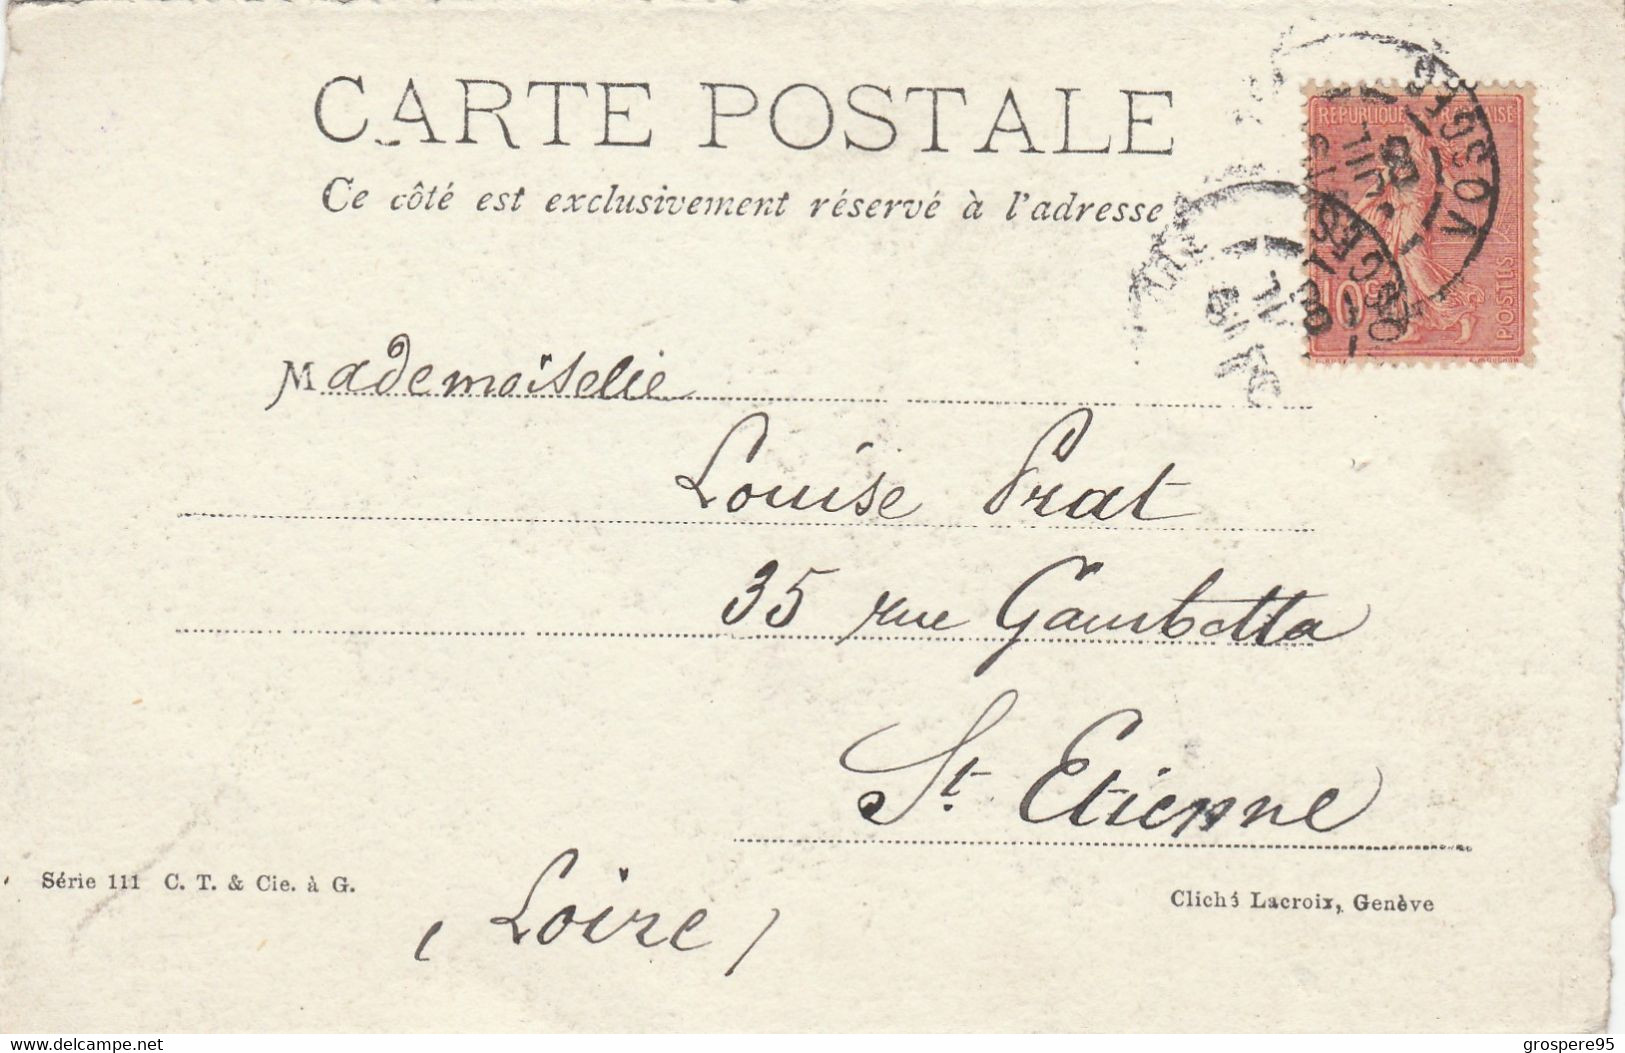 CARTE POSTALE
Ce côté est exclusivement réservé à l'adresse
REPUBLIQUE FRANÇAISE
POSTES
10
VOSGES
Mademoiselle
Louise Prat
35 rue Gambetta
St Etienne
(Loire)
Série 111 C. T. & Cie. à G.
Cliché Lacroix, Genève
www.delcampe.net
grospere95